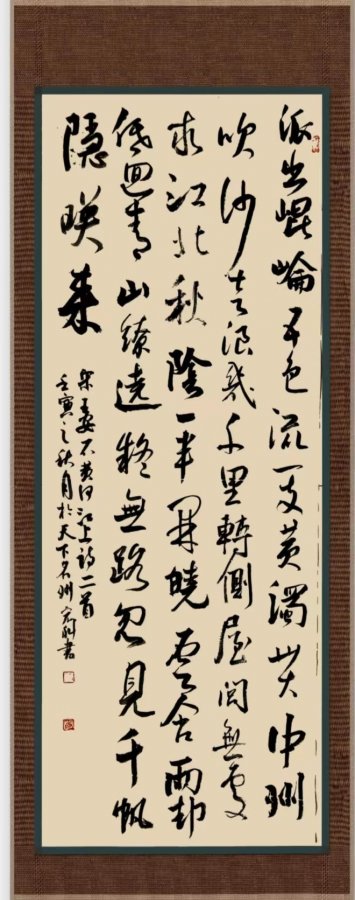 派出崐崘五色流一支黄濁貫中州
吹沙走浪幾千里轉側屋閭無處
求江北秋陰一半開曉雲含雨却
低迴青山繚遶疑無路忽見千帆
隱映来
宋王安石黄河江上詩二首
壬寅之秋月於天下名州書